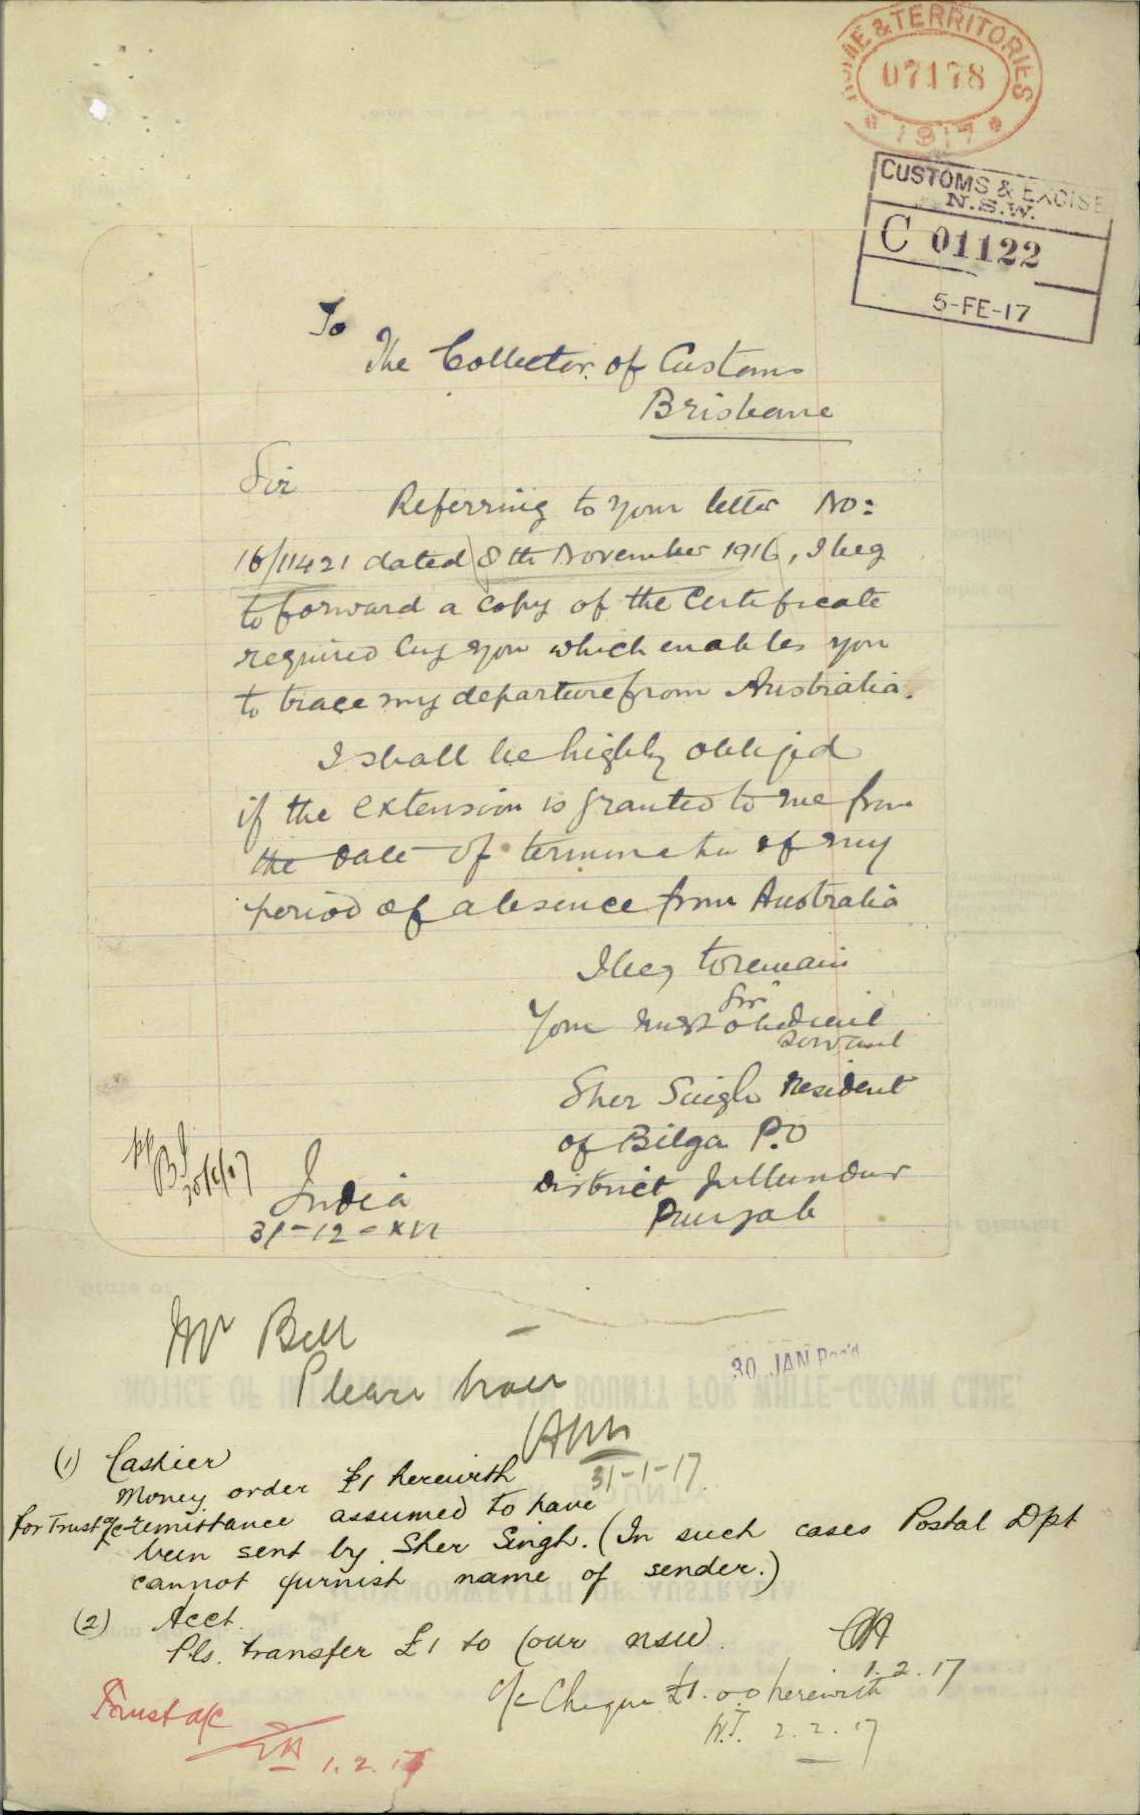 HOME & TERRITORIES
07178
* 1917 *
CUSTOMS & EXCISE
N.S.W.
C 01122
5-FE-17
To
The Collector of Customs
Brisbane
Sir
Referring to your letter No:
16/11421 dated 8th November 1916, I beg
to forward a copy of the Certificate
required by you which enables you
to trace my departure from Australia.
I shall be highly obliged
if the extension is granted to me from
the date of termination of my
period of absence from Australia
I beg to remain
Sir
Your most obedient
Servant
Sher Singh Resident
of Bilga P.O
District Jullundur
Punjab
India
31-12-XVI
Mr Bell
Please trace
31-1-17
30 JAN Rec'd
(1) Cashier
Money order £1 herewith
for Trust a/c remittance assumed to have
been sent by Sher Singh. (In such cases Postal Dpt
cannot furnish name of sender.)
(2) Acct.
Pls. transfer £1 to Coll NSW.
1.2.17
Cheque £1.0.0 herewith
2.2.17
Trust a/c
1.2.17